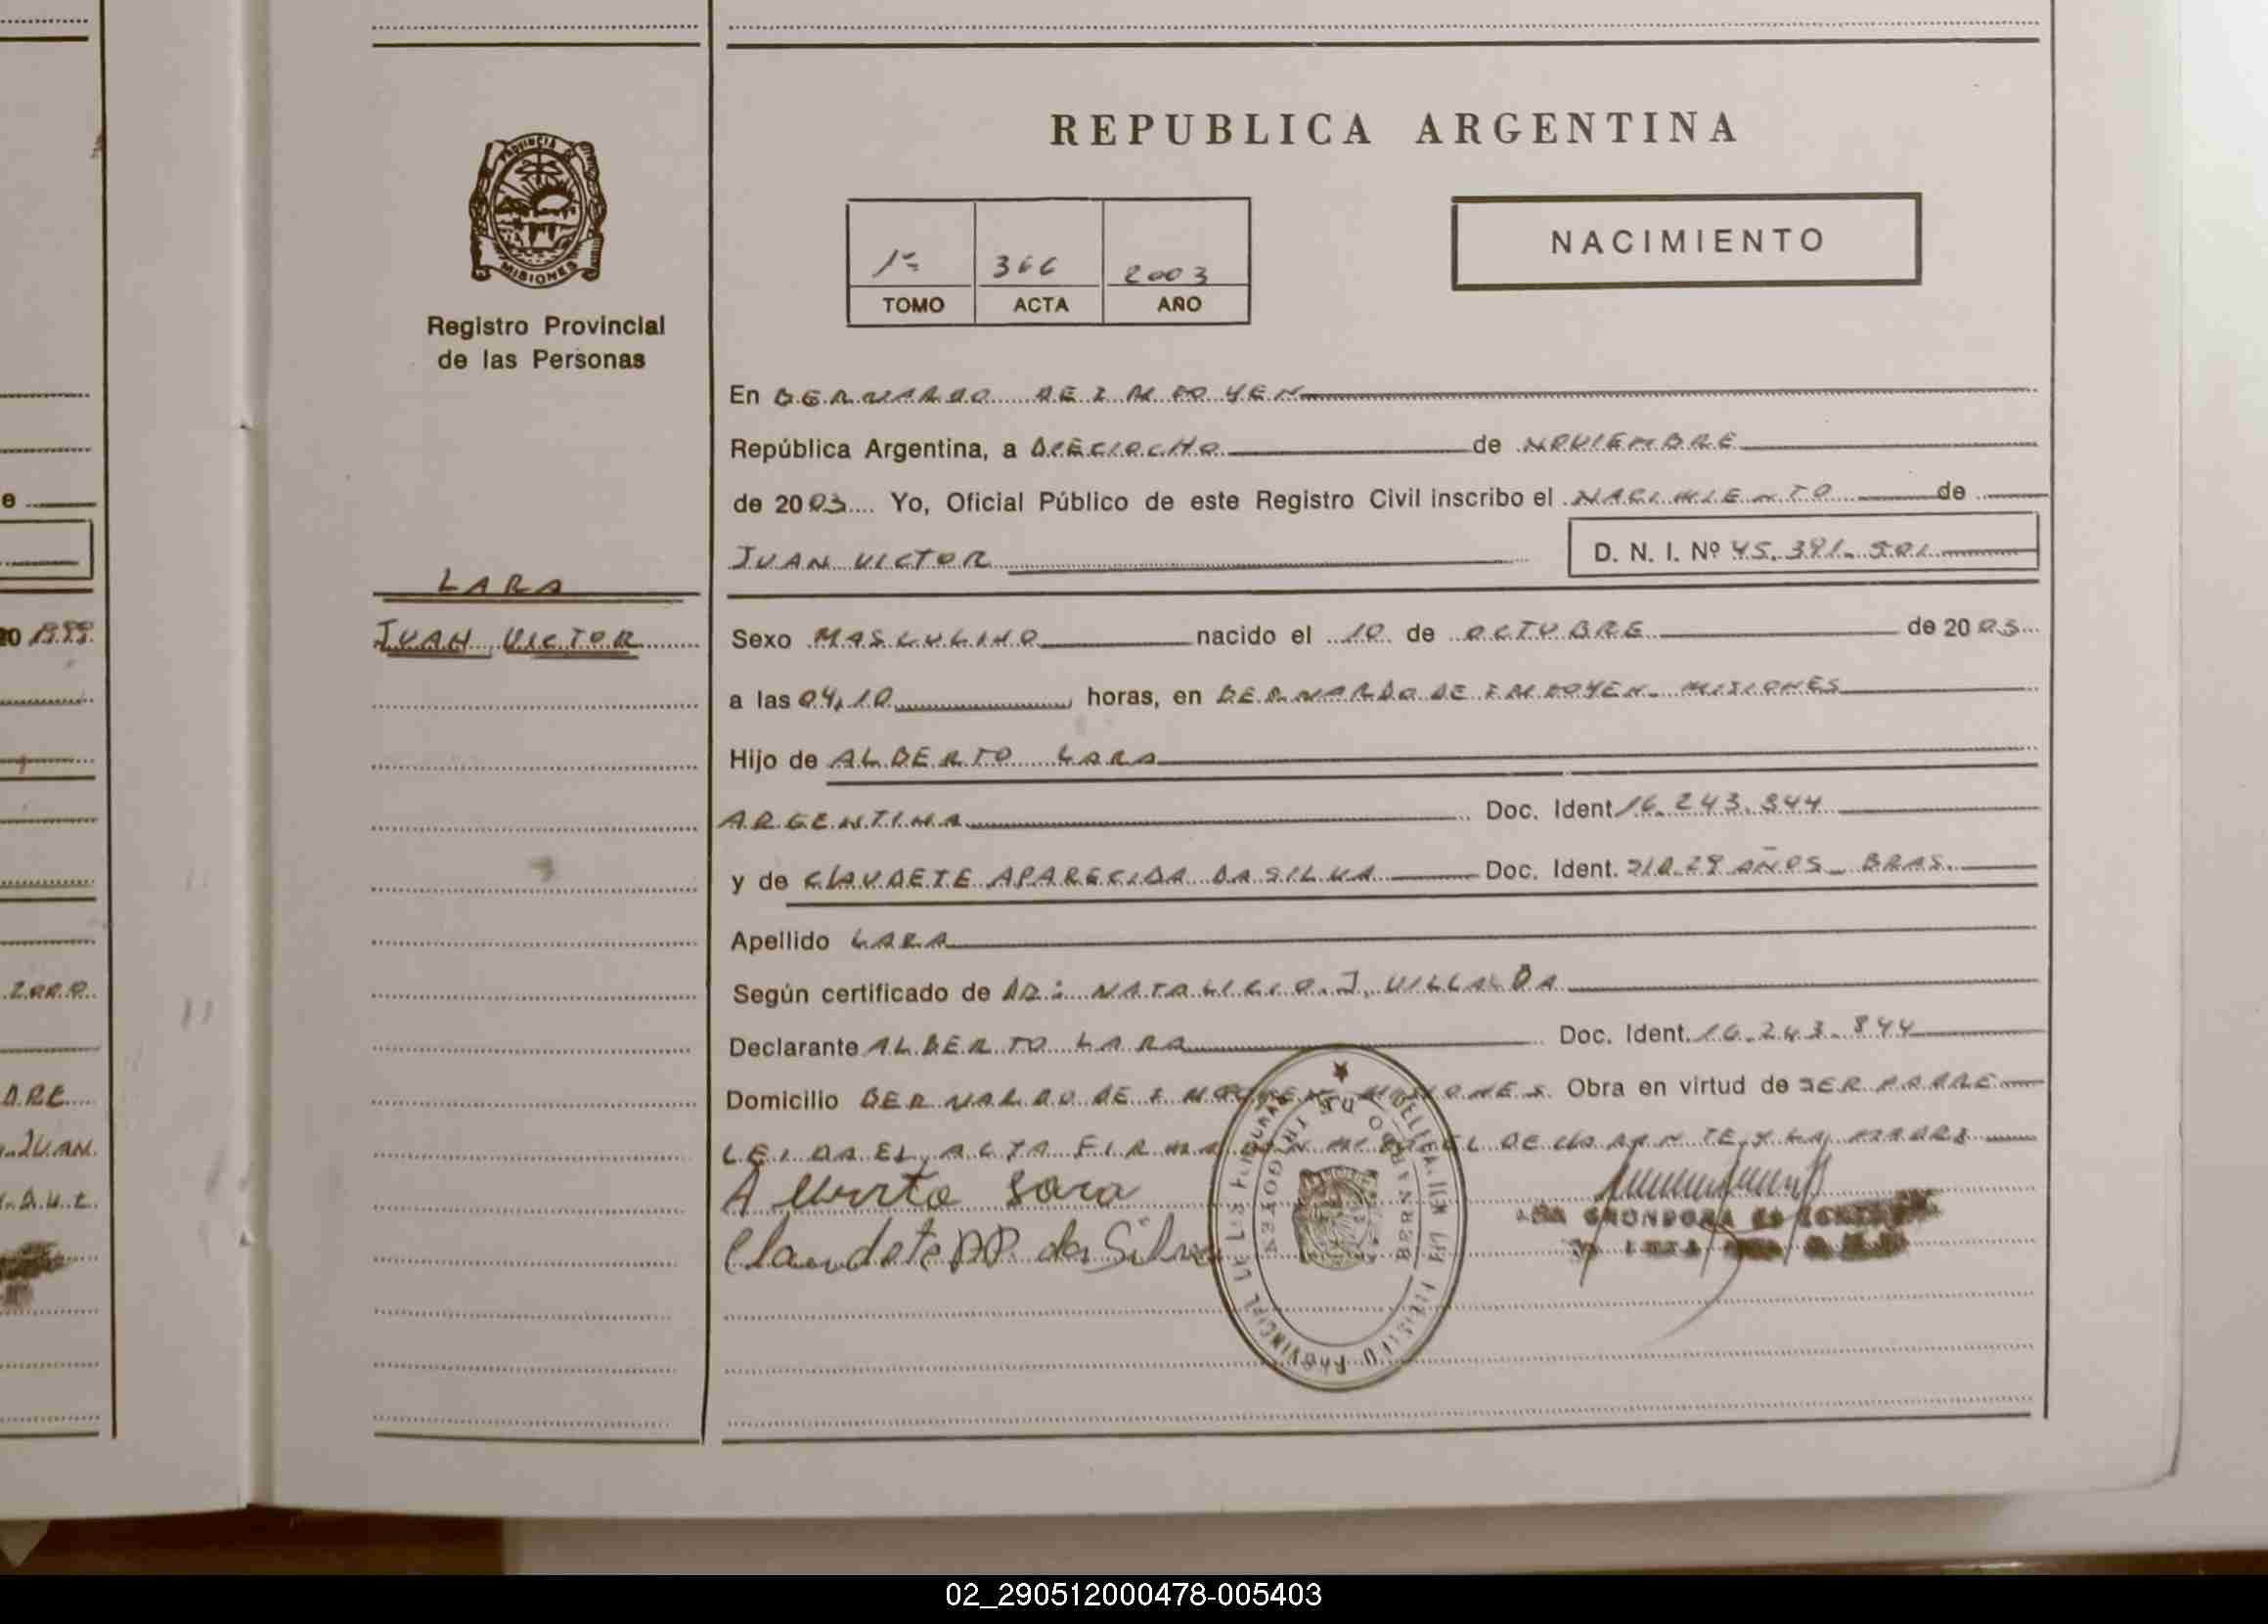 REPUBLICA ARGENTINA
PROVINCIA DE MISIONES
Registro Provincial
de las Personas
1º 366 2003
TOMO ACTA AÑO
NACIMIENTO
En BERNARDO DE IRIGOYEN
República Argentina, a DIECIOCHO de NOVIEMBRE
de 2003 Yo, Oficial Público de este Registro Civil inscribo el NACIMIENTO de
JUAN VICTOR D. N. I. Nº 45.391.501
LARA
JUAN VICTOR
Sexo MASCULINO nacido el 10 de OCTUBRE de 2003
a las 04,10 horas, en BERNARDO DE IRIGOYEN - MISIONES
Hijo de ALBERTO LARA
ARGENTINA Doc. Ident 16.243.844
y de CLAUDETE APARECIDA DA SILVA Doc. Ident. 29 AÑOS - BRAS.
Apellido LARA
Según certificado de DR: NATALICIO J. VILLALBA
Declarante ALBERTO LARA Doc. Ident. 16.243.844
Domicilio BERNARDO DE IRIGOYEN MISIONES. Obra en virtud de SER PADRE
LEIDA EL ACTA FIRMAN EL DECLARANTE Y LA MADRE
Alberto Lara
Claudete AP. da Silva
BERNARDO DE IRIGOYEN
20 1999.
2000.
JUAN.
02_290512000478-005403